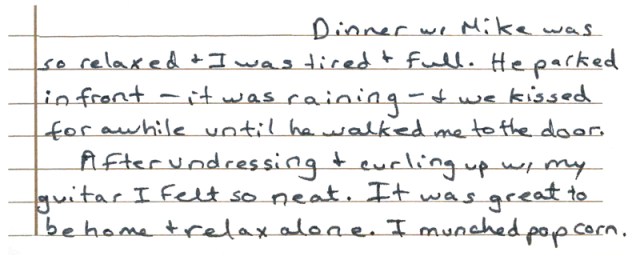 Dinner w/ Mike was
so relaxed + I was tired + full. He parked
in front - it was raining - + we kissed
for awhile until he walked me to the door.
After undressing + curling up w/ my
guitar I felt so neat. It was great to
be home + relax alone. I munched popcorn.